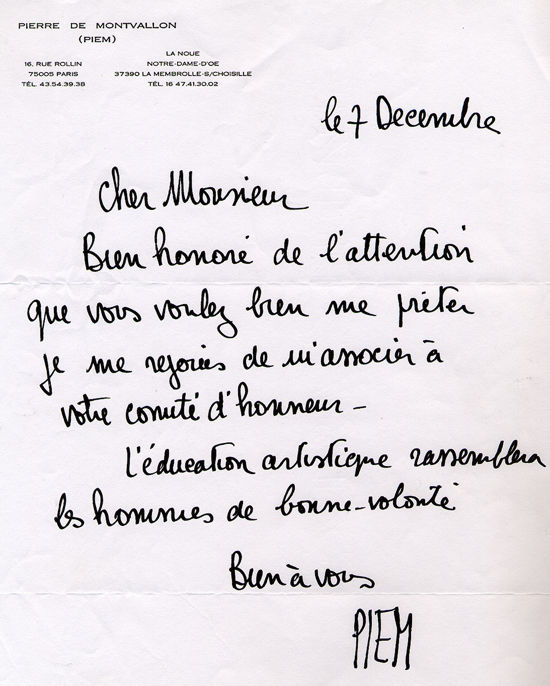 PIERRE DE MONTVALLON
(PIEM)
16, RUE ROLLIN
75005 PARIS
TÉL. 43.54.39.38
LA NOUE
NOTRE-DAME-D'OE
37390 LA MEMBROLLE-S/CHOISILLE
TÉL. 16 47.41.30.02
le 7 Decembre
Cher Monsieur
Bien honoré de l'attention
que vous voulez bien me prêter
je me rejouis de m'associer à
votre comité d'honneur –
l'éducation artistique rassemblera
les hommes de bonne-volonté
Bien à vous
PIEM